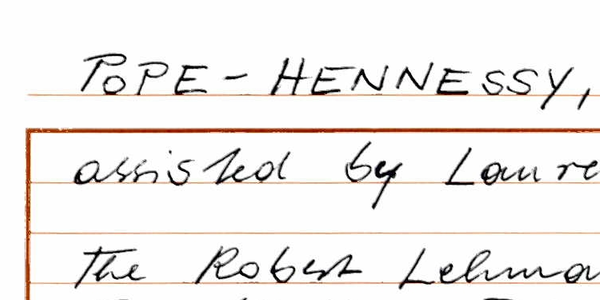 POPE-HENNESSY,
assisted by Laure
the Robert Lehma